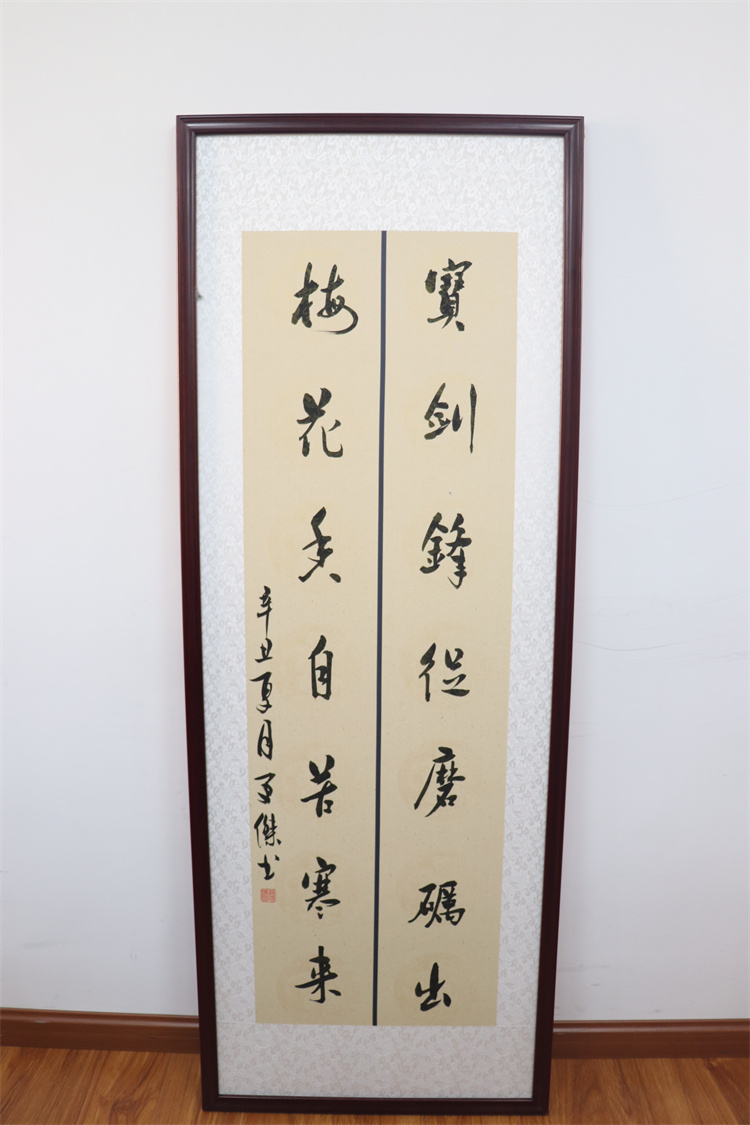 寳劍鋒從磨礪出
梅花香自苦寒来
辛丑夏月 傑书